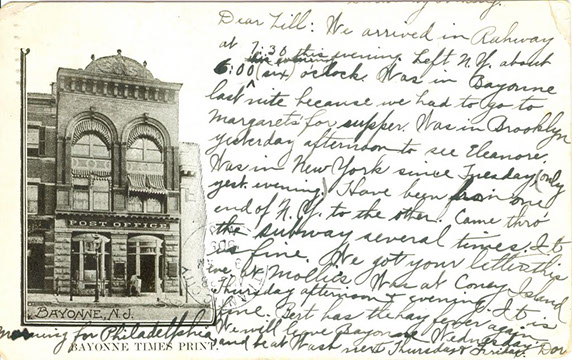 Dear Lill: We arrived in Rahway
at 7:30 this evening left N.Y. about
6:00 (six) o'clock. Was in Bayonne
last nite because we had to go to
Margarets for supper. Was in Brooklyn
yesterday afternoon to see Eleanore.
Was in New York since Tuesday (only
yest. evening) Have been from one
end of N.Y. to the other. Came thro'
the subway several times. It
is fine. We got your letter this
eve. at Mollie's. Was at Coney Island
Thursday afternoon & evening. It is
fine. Gert has the hay fever again
We will leave Bayonne Wednesday
morning for Philadelphia
and be at Wash next Thursday or Friday. Dor
POST OFFICE
BAYONNE, N.J.
BAYONNE TIMES PRINT.